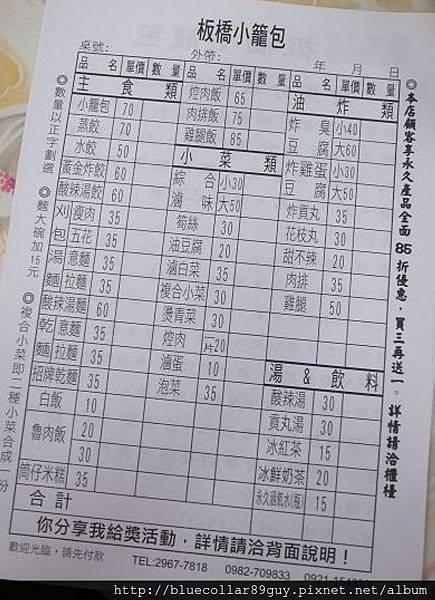 板橋小籠包
桌號: 外帶: 年 月 日
品名 單價 數量 品名 單價 數量 品名 單價 數量
主食類
小籠包 70
蒸餃 70
水餃 50
黃金炸餃 60
酸辣湯餃 60
刈包 瘦肉 35
五花 35
湯麵 意麵 35
拉麵 35
酸辣湯麵 60
乾麵 意麵 35
拉麵 35
招牌乾麵 35
白飯 10
魯肉飯 20
30
筒仔米糕 35
焢肉飯 65
肉排飯 75
雞腿飯 85
小菜類
綜合滷味 小30
大50
筍絲 30
油豆腐 20
滷白菜 35
複合小菜 30
燙青菜 30
焢肉 片20
滷蛋 10
泡菜 35
油炸類
炸臭豆腐 小40
大60
炸雞蛋豆腐 小30
大50
炸貢丸 35
花枝丸 30
甜不辣 20
肉排 35
雞腿 50
湯&飲料
酸辣湯 30
貢丸湯 30
冰紅茶 15
冰鮮奶茶 20
永久過氧水(瓶) 15
合計
你分享我給獎活動,詳情請洽背面說明!
歡迎光臨,請先付款 TEL:2967-7818 0982-709833
◎數量以正字劃選 ◎麵大碗加15元 ◎複合小菜即二種小菜合成一份
◎本店顧客享永久產品全面85折優惠,買三再送一。詳情請洽櫃檯
http://bluecollar89guy.pixnet.net/album